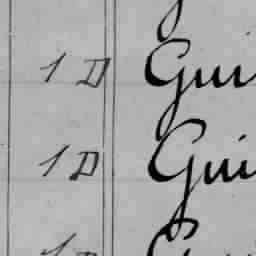 1 D Gui
1 D Gui